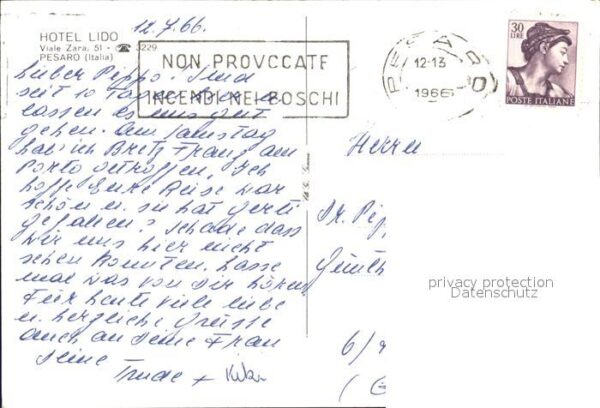 12.7.66.
HOTEL LIDO
Viale Zara, 51 - ☎ 3229
PESARO (Italia)
NON PROVOCATE
INCENDI NEI BOSCHI
PESARO
12-13
1966
30
LIRE
POSTE ITALIANE
Lieber Pippo! Sind
seit 10 Tagen hier u.
lassen es uns gut
gehen. Am Samstag
hab' ich Franz am
Porto getroffen. Ich
hoffe Eure Reise war
schön u. sie hat Gerti
gefallen? Schade dass
wir uns hier nicht
sehen konnten. Lasse
mal was von Dir hören
Für heute viele liebe
u. herzliche Grüsse
auch an Deine Frau
Deine
Trude +
Herrn
Dr. Pipp
Günth
6/
(G
privacy protection
Datenschutz